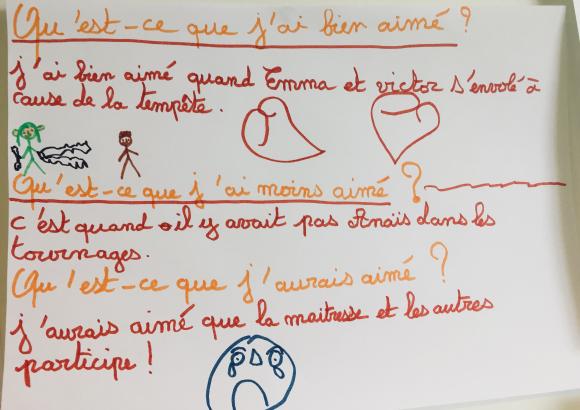 Qu'est-ce que j'ai bien aimé ?
j'ai bien aimé quand Emma et victor s'envolé à
cause de la tempête.
Qu'est-ce que j'ai moins aimé ?
c'est quand il y avait pas Anaïs dans les
tournages.
Qu'est-ce que j'aurais aimé ?
j'aurais aimé que la maitresse et les autres
participe !